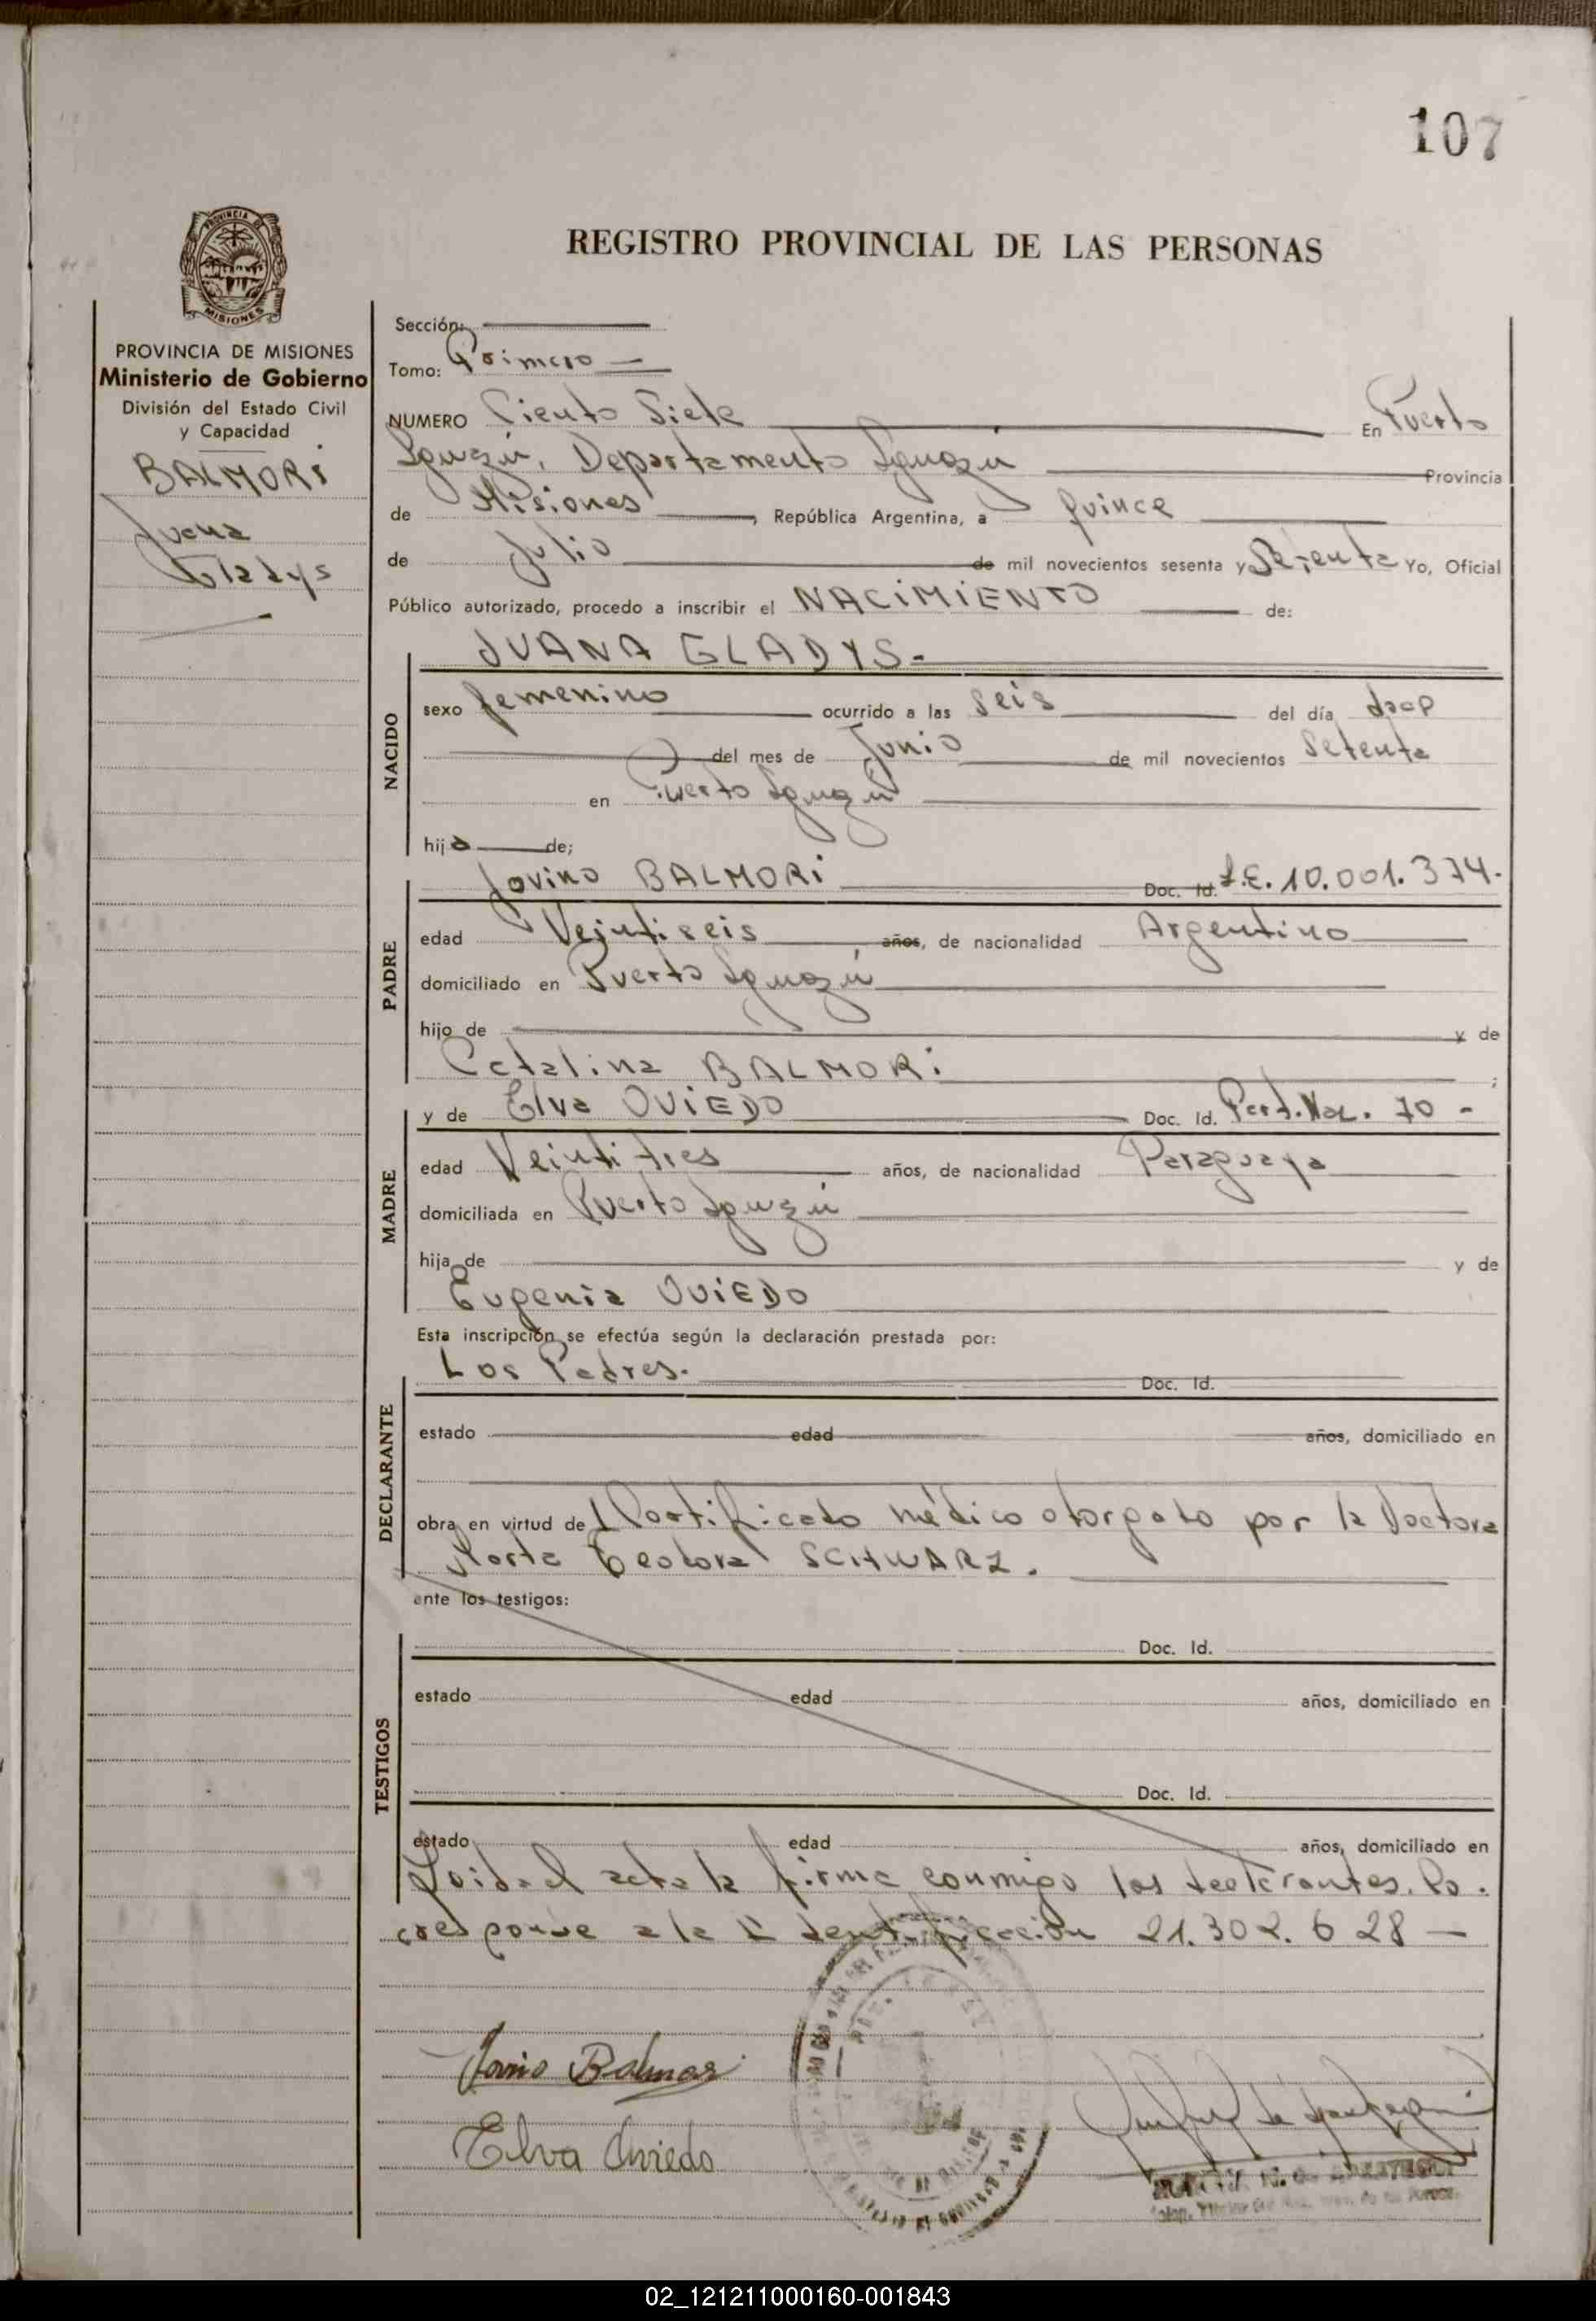 107
PROVINCIA DE
MISIONES
REGISTRO PROVINCIAL DE LAS PERSONAS
PROVINCIA DE MISIONES
Ministerio de Gobierno
División del Estado Civil
y Capacidad
BALMORI
Juana
Gladys
Sección:
Tomo: Primero
NUMERO Ciento Siete En Puerto
Iguazú, Departamento Iguazú Provincia
de Misiones, República Argentina, a quince
de Julio de mil novecientos sesenta y Setenta Yo, Oficial
Público autorizado, procedo a inscribir el NACIMIENTO de:
NACIDO
JUANA GLADYS.-
sexo femenino ocurrido a las seis del día doce
del mes de Junio de mil novecientos Setenta
en Puerto Iguazú
hija de;
PADRE
Jovino BALMORI Doc. Id. L.E. 10.001.374.
edad Veintiseis años, de nacionalidad Argentino
domiciliado en Puerto Iguazú
hijo de y de
Catalina BALMORI ;
MADRE
y de Elva OVIEDO Doc. Id. Nac. 70 -
edad Veintitres años, de nacionalidad Paraguaya
domiciliada en Puerto Iguazú
hija de y de
Eugenia OVIEDO
Esta inscripción se efectúa según la declaración prestada por:
DECLARANTE
Los Padres. Doc. Id.
estado edad años, domiciliado en
obra en virtud del Certificado médico otorgado por la Doctora
Marta Teodora SCHWARZ.
ante los testigos:
TESTIGOS
Doc. Id.
estado edad años, domiciliado en
Doc. Id.
estado edad años, domiciliado en
Leida el acta la firma conmigo los declarantes. Co.
rresponde a la Identificación 21.302.628 —
Jovino Balmori
Elva Oviedo
02_121211000160-001843